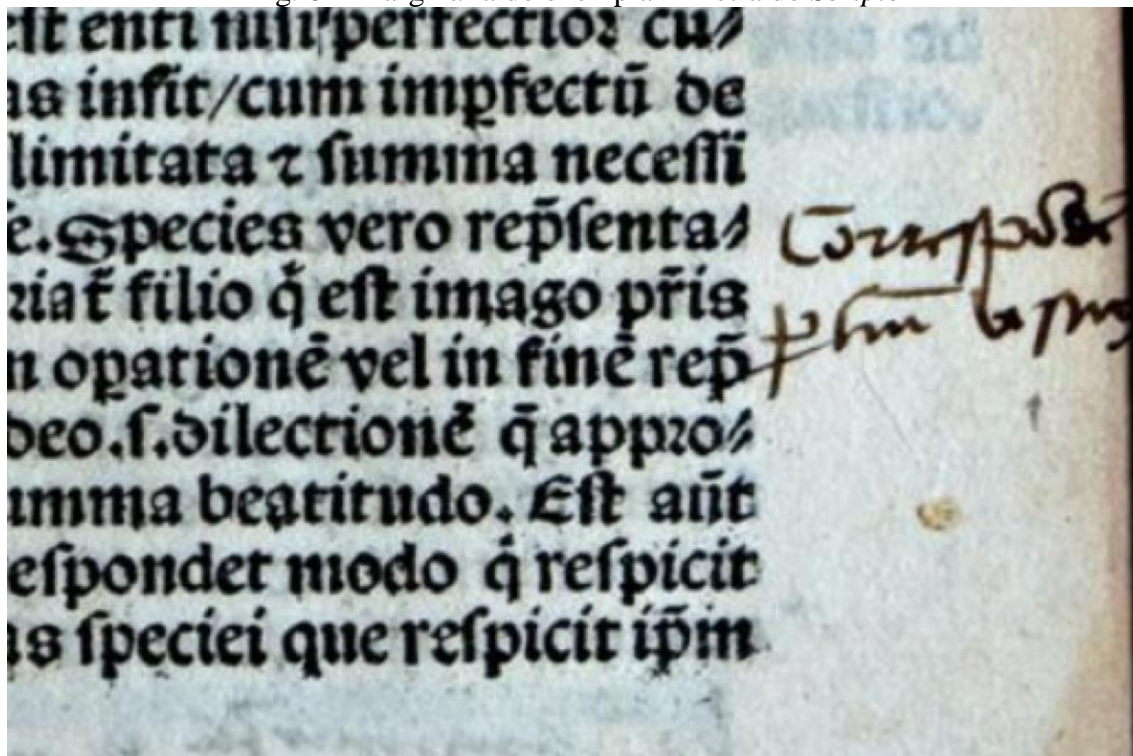 est enti nisi perfectioꝛ cu⸗
as insit/cum imꝑfectū de
limitata ⁊ summa necessi
e. Species vero rep̄senta⸗
riat᷑ filio q̇ est imago pr̄is
n oꝑationē vel in finē rep̄
deo.s.dilectionē q̄ appro⸗
umma beatitudo. Est aūt
espondet modo q̇ respicit
as speciei que respicit ip̄m